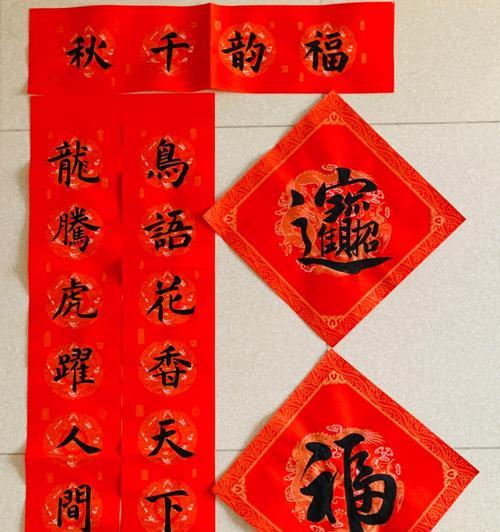 福韵千秋
鳥語花香天下
龍騰虎躍人間
招財進寶
福